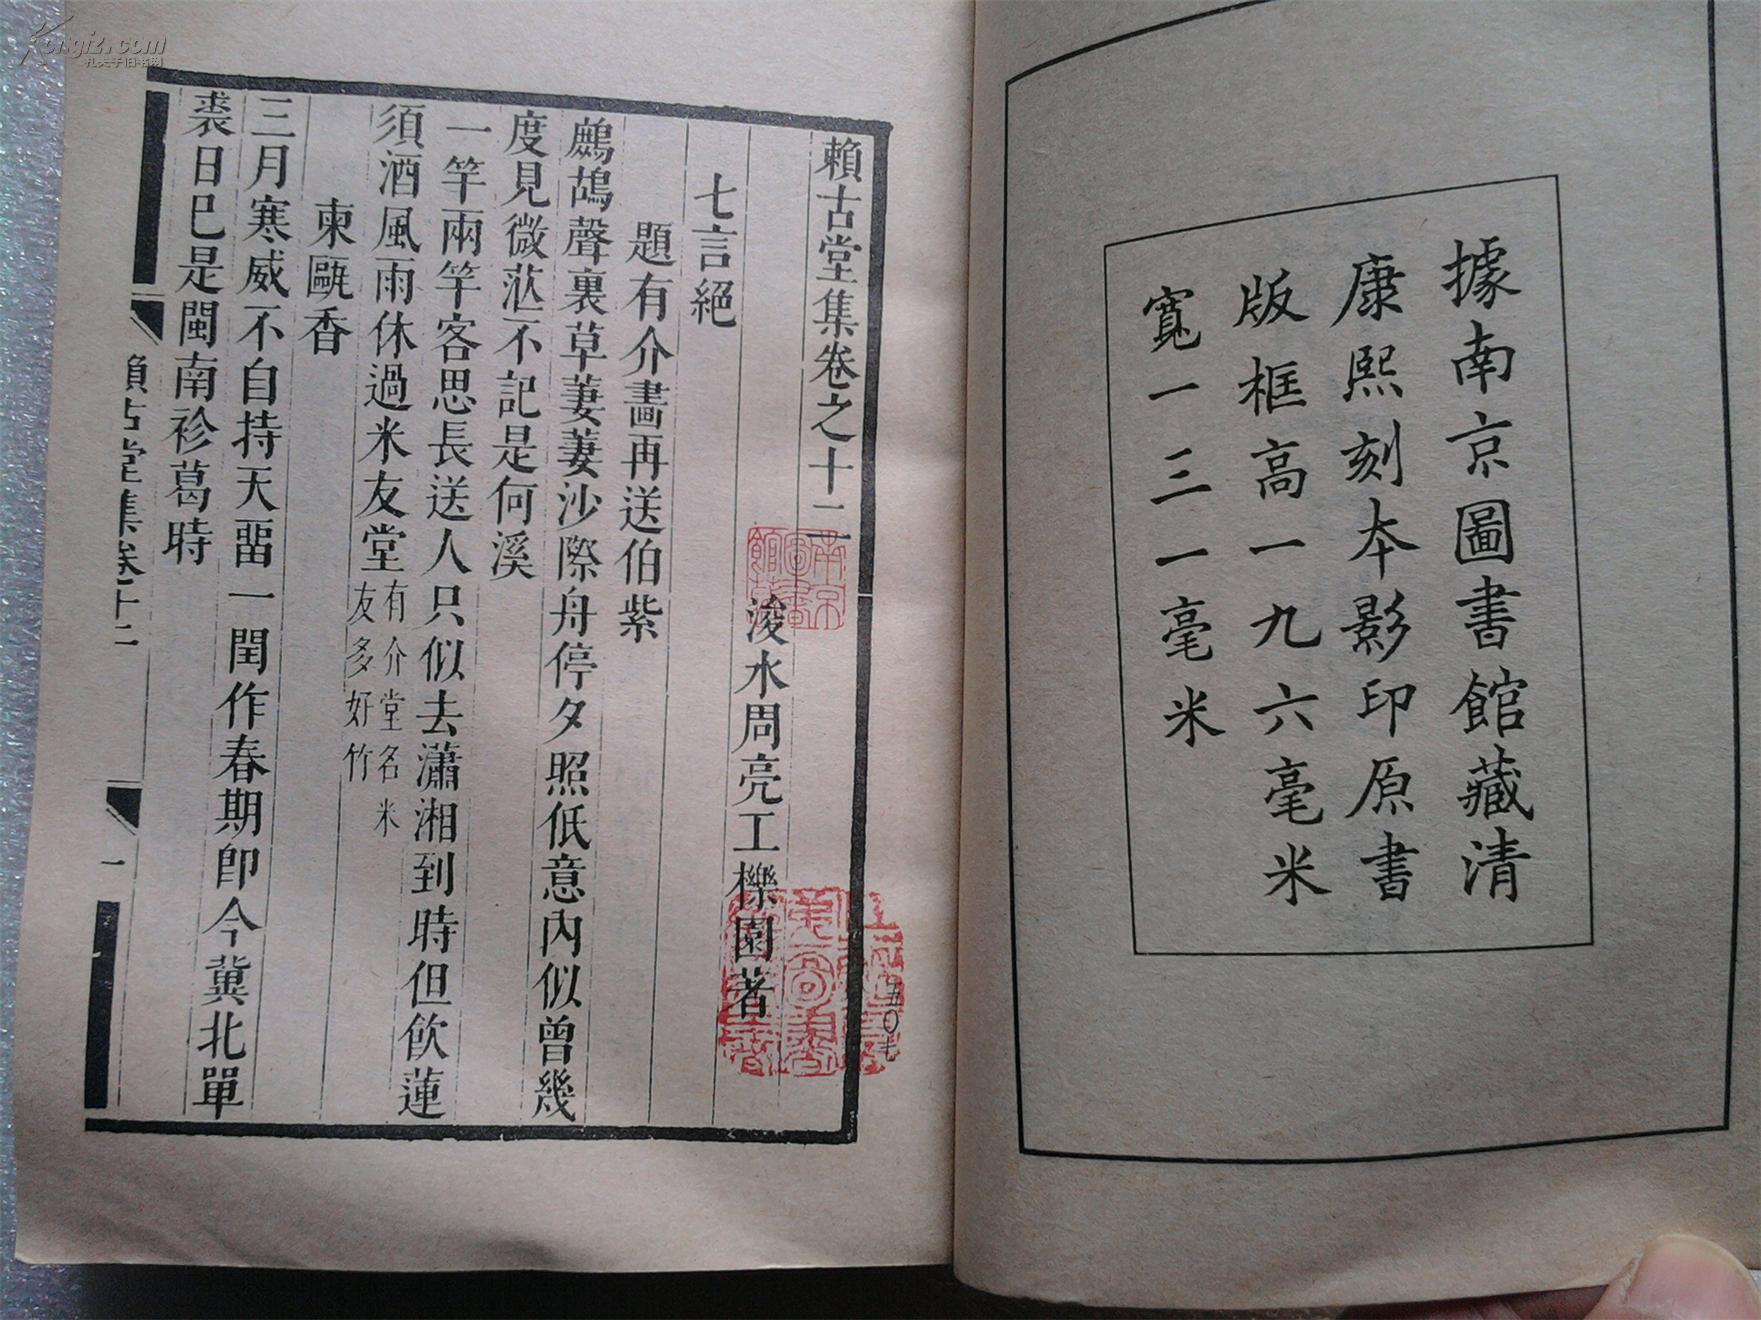 據南京圖書館藏清
康熙刻本影印原書
版框高一九六毫米
寬一三一毫米
賴古堂集卷之十二
浚水周亮工櫟園著
七言絕
題有介畫再送伯紫
鷓鴣聲裏草萋萋沙際舟停夕照低意內似曾幾
度見微茫不記是何溪
一竿兩竿客思長送人只似去瀟湘到時但飲蓮
須酒風雨休過米友堂
有介堂名米
友多好竹
柬甌香
三月寒威不自持天畱一閏作春期卽今冀北單
裘日巳是閩南袗葛時
賴古堂集卷十二
一
五〇七
Kongfz.com
孔夫子旧书网